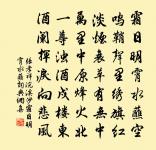 霜日明霄水蘸空
鳴鞘聲里繡旗紅
淡煙衰草有無中
萬里中原烽火北
一尊濁酒戍樓東
酒闌揮淚向悲風
張孝祥浣溪沙霜日明
霄水蘸詞典網集